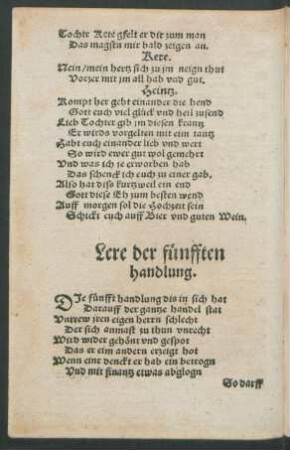 Tochter Rete gfelt er dir zum man
Das magstu mir bald zeigen an.
Rete.
Nein/mein hertz sich zu jm neign thut
Vorzer mit jm all hab vnd gut.
Heintz.
Kompt her gebt einander die hend
Gott euch viel glück vnd heil zusend
Lieb Tochter gib jm diesen krantz
Er wirds vorgelten mit eim tantz
Habt euch einander lieb vnd wert
So wird ewer gut wol gemehrt
Vnd was ich je erworben hab
Das schenck ich euch zu einer gab.
Also hat diss kurtzweil ein end
Gott diese Eh zum besten wend
Auff morgen sol die Hochzeit sein
Schickt euch auff Bier vnd guten Wein.
Lere der fünfften
handlung.
DIe fünfft handlung dis in sich hat
Darauff der gantze handel stat
Vntrew jren eigen herrn schlecht
Der sich anmast zu thun vnrecht
Wird wider gehönt vnd gespot
Das er eim andern erzeigt hot
Wenn einr denckt er hab ein betrogn
Vnd mit finantz etwas abglogn
So darff